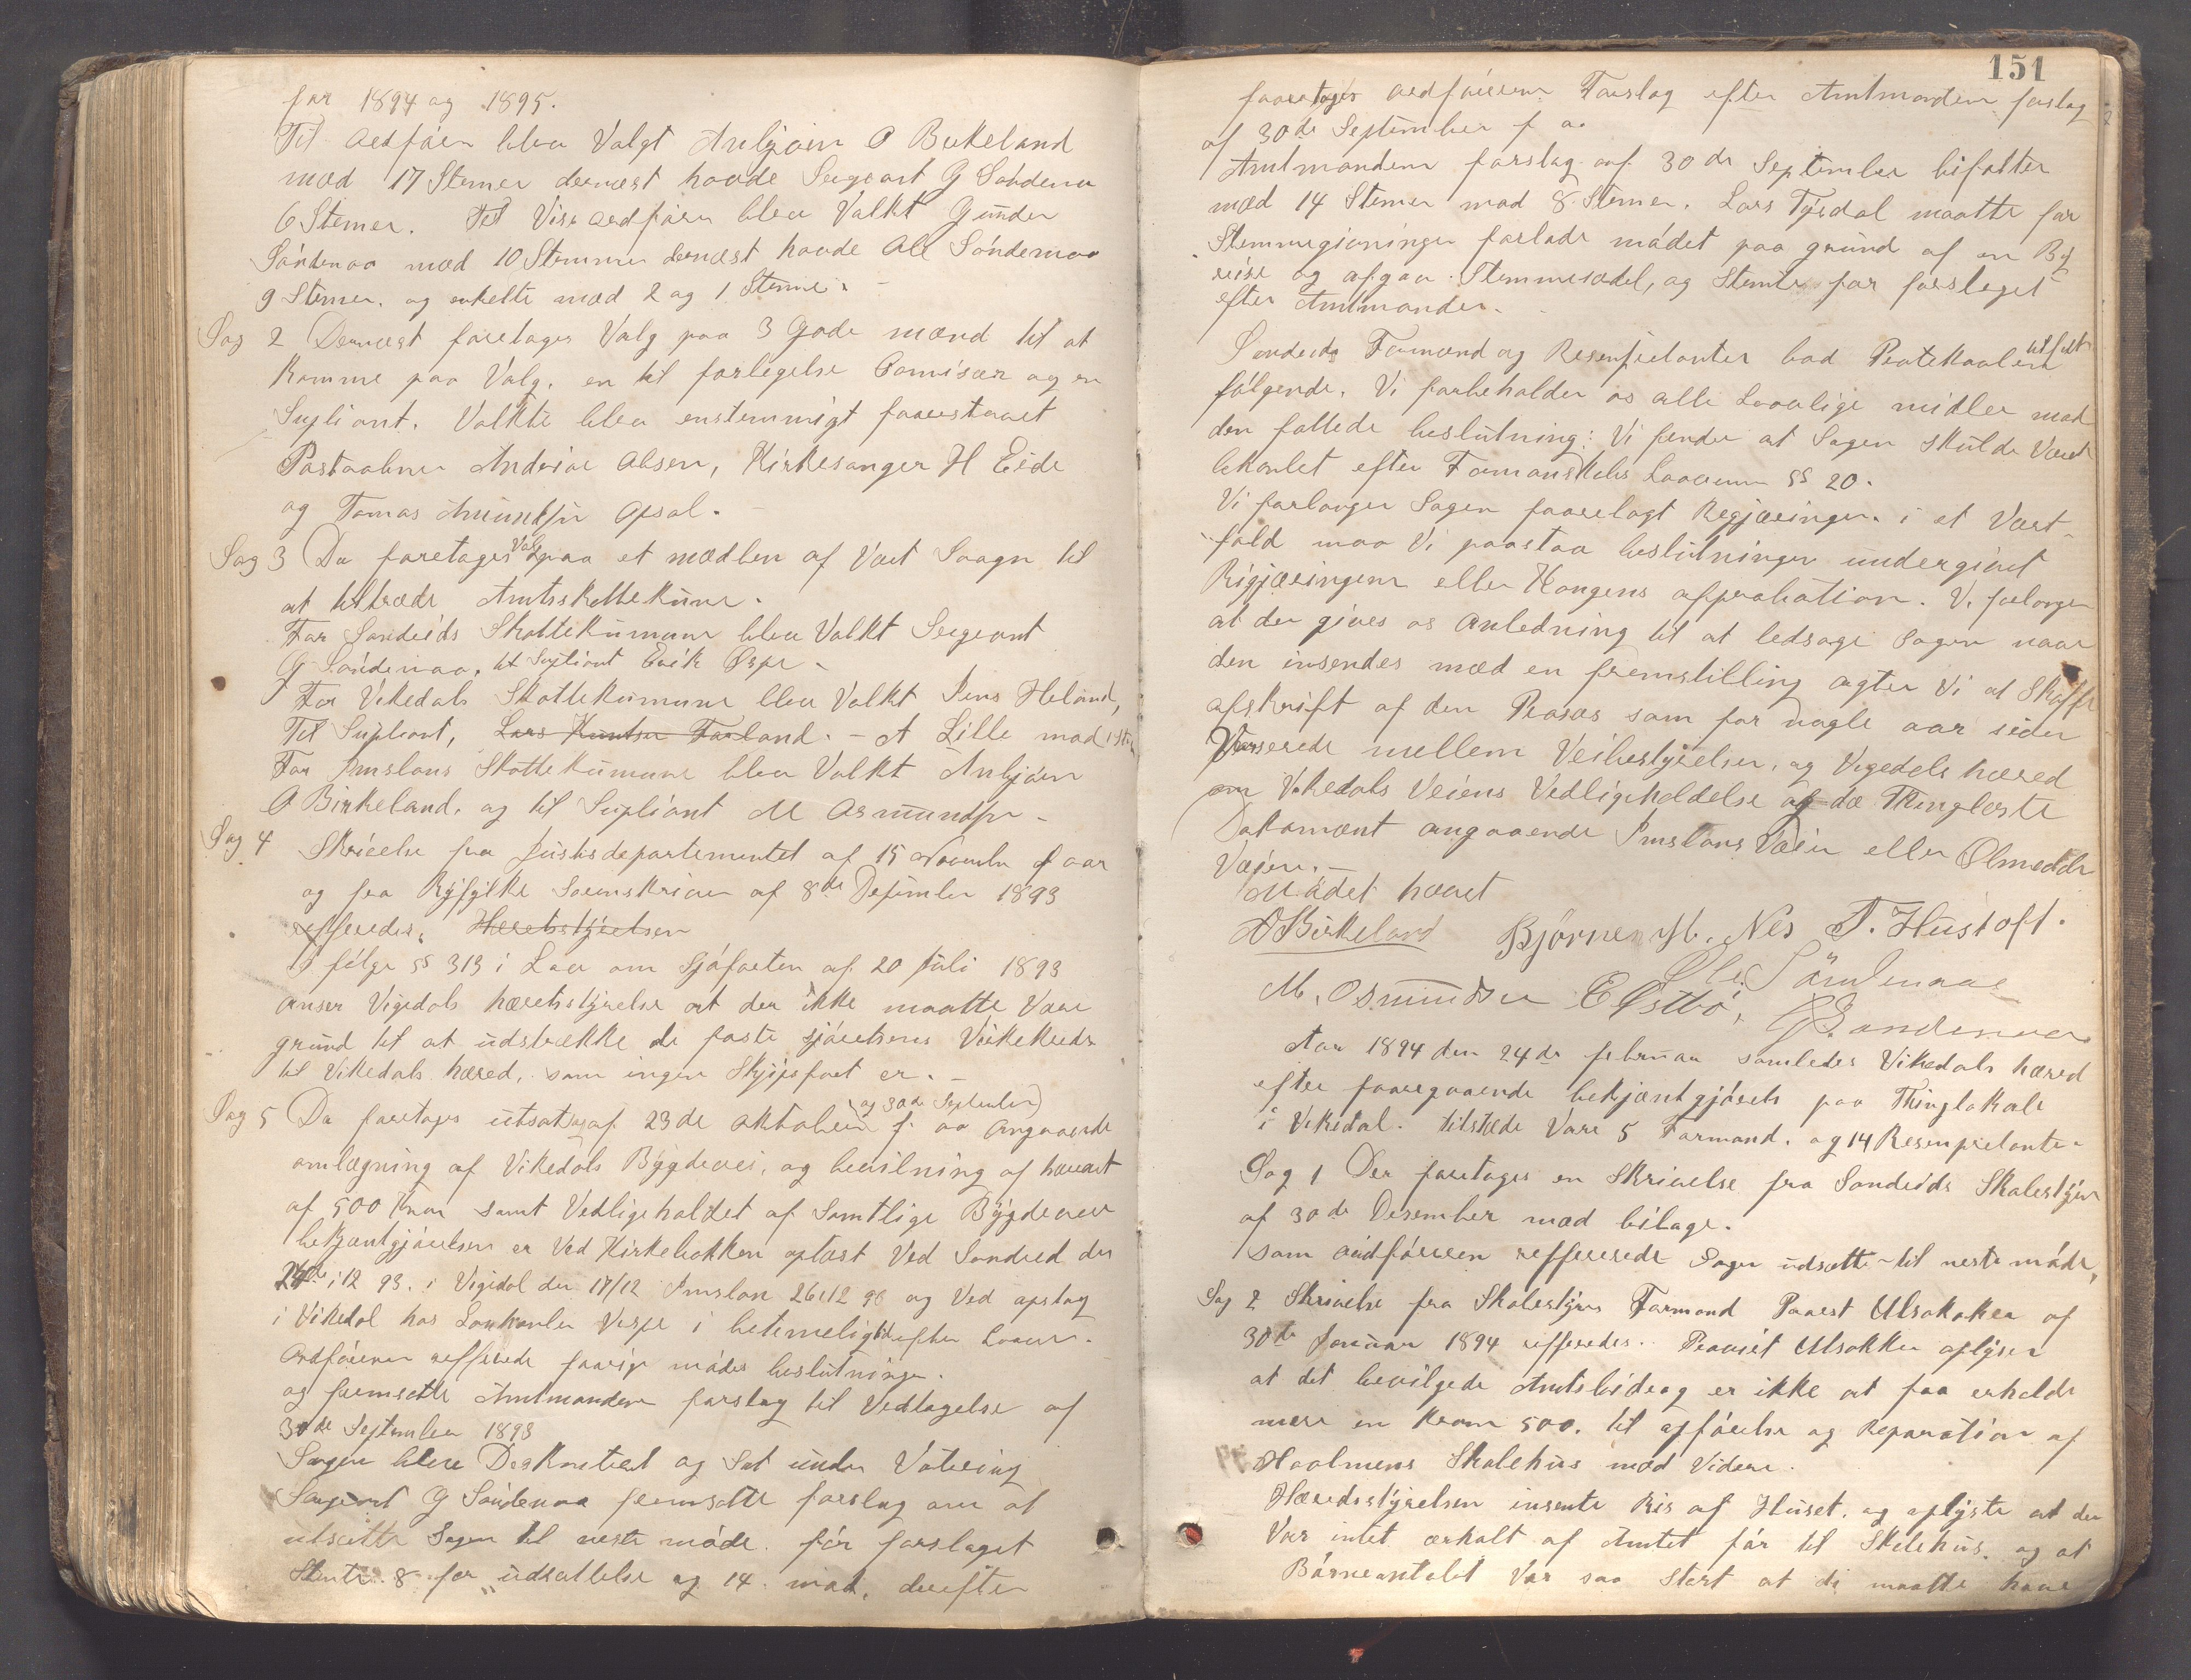 for 1894 og 1895.
Til Ordfører blev Valgt Anbjørn O Birkeland
mæd 17 Stemer dernæst havde Sergeant G Søndena
6 Stemer. Til Vise ordfører blev Valkt Gunder
Søndenaa mæd 10 Stemmer dernæst havde Ole Søndenaa
9 Stemer. og enkelte mæd 2 og 1 Steme. -
Sag 2 Dernæst foretages Valg paa 3 Gode mænd til at
komme paa Valg. en til forligelse Comisær og en
Supliant. Valkte blev enstemmigt foorestaaet
Postaabner Andreas Olsen, Kirkesanger H Eide
og Tomas Amundsen Opsal. -
Sag 3 Da foretages Valg paa et mædlem af Vært Soagn til
at tiltræde Amtsskattekume.
For Sandeids Skattekumune blev Valkt Sergeant
G Søndenaa. til Supliant Erik Øspe -
For Vikedals Skattekumune blev Valkt Jens Heland,
Til Supliant, Lars Knutsen Farland. - A Lille mod 1 St
For Imslans Skattekumune blev Valkt Anbjørn
O Birkeland. og til Supliant M Osmundsen -
Sag 4 Skrivelse fra Justisdepartementet af 15 November f aar
og fra Ryfylke Sorenskriver af 8de Desember 1893
refferedes. Heretsstyrelsen
I følge §§ 313 i Lov om Sjøfarten af 20 Juli 1893
anser Vigedals hæretsstyrelse at der ikke maatte Være
grund til at udstrække de faste sjøretsens Virkekreds
til Vikedals hæred, som ingen Skjipsfart er. -
Sag 5 Da foretages utsatsag af 23de Oktober (og 30de September) f. aa Angaaende
omlægning af Vikedals Bygdevei, og bevilning af hæret
af 500 Kron samt Vedligeholdet af Samtlige Bygdeveie
bekjæntgjørelsen er Ved Kirkebakken oplæst Ved Sandeid den
24de i 12 93. i Vigidal den 17/12 Imslan 26/12 93 og Ved opslag
i Vikedal hos Lankanler Vespe i betimelig tid efter Loven.
Ordføreren refferede forrige mødes beslutninger.
og fremsatte Amtmanden forslag til Vedtagelse af
30de September 1893
Sagen bleve Diskuteret og Sat under Votering
Sergeant G Søndenaa fremsatte forslag om at
utsætte Sagen til neste møde. før forslaget
Stemte 8 for udsættelse og 14 mod. derefter
151
foretages ordføreren Forslag efter Amtmanden forslag
af 30de September f aa
Amtmanden forslag af 30de September bifaltes
mæd 14 Stemer mod 8 Stemer. Lars Tysdal maatte før
Stemmegivningen forlade mødet paa grund af en By
reise og afgav Stemmesædel, og Stemte for forslaget
efter Amtmanden.
Sandeids Formænd og Resenpretanter bad Protokollen tilført
følgende. Vi forbeholder os alle Lovlige midler mod
den fattede beslutning: Vi finder at Sagen skulde Være
behanlet efter Formanskabs Loven §§ 20.
Vi forlanger Sagen foorelagt Regjæringen. i et Værst-
fald maa Vi paastaa beslutningen undergivet
Rigjæringen eller Kongens approbation. Vi forlanger
at der gives os Anledning til at ledsage Sagen naar
den insendes mæd en fremstilling agter Vi at Skaffe
afskrift af den Proses som for nogle aar siden
Verserede mellem Veibestyrelsen, og Vigedals hæred
om Vikedals Veiens Vedligeholdelse og de Thinglæste
Dokomænt angaaende Imslans Veien eller Ølmedals
Veien. -
Mødet hævet
O Birkeland Bjørne M. Nes T. Hustoft.
M. Osmundsen E Østbø, Ole Søndenaae
G Søndenaa
Aar 1894 den 24de februar samledes Vikedals hæred
efter fooregaaende bekjæntgjørels paa Thinglokale
i Vikedal. tilstede Vare 5 Formænd. og 14 Resenpretanter
Sag 1 Der foretages en Skrivelse fra Sandeids Skolestyre
af 30de Desember mæd bilage.
som ordføreren reffererede Sagen udsættes til neste møde,
Sag 2 Skrivelse fra Skolestyres Formand Provst Ulsokaker af
30de Januar 1894 refferedes. Provst Ulsokker oplyser
at det bevilgede Amtsbidrag er ikke at faa erholde
mere en Kroner 500. til opførelse og Reparation af
Hoolmens Skolehus mæd Videre.
Hæredsstyrelsen insente Ris af Huset. og oplyste at der
Var intet ærholt af Amtet før til Skolehus. og at
Børneantalet Var saa Stort at di maatte have